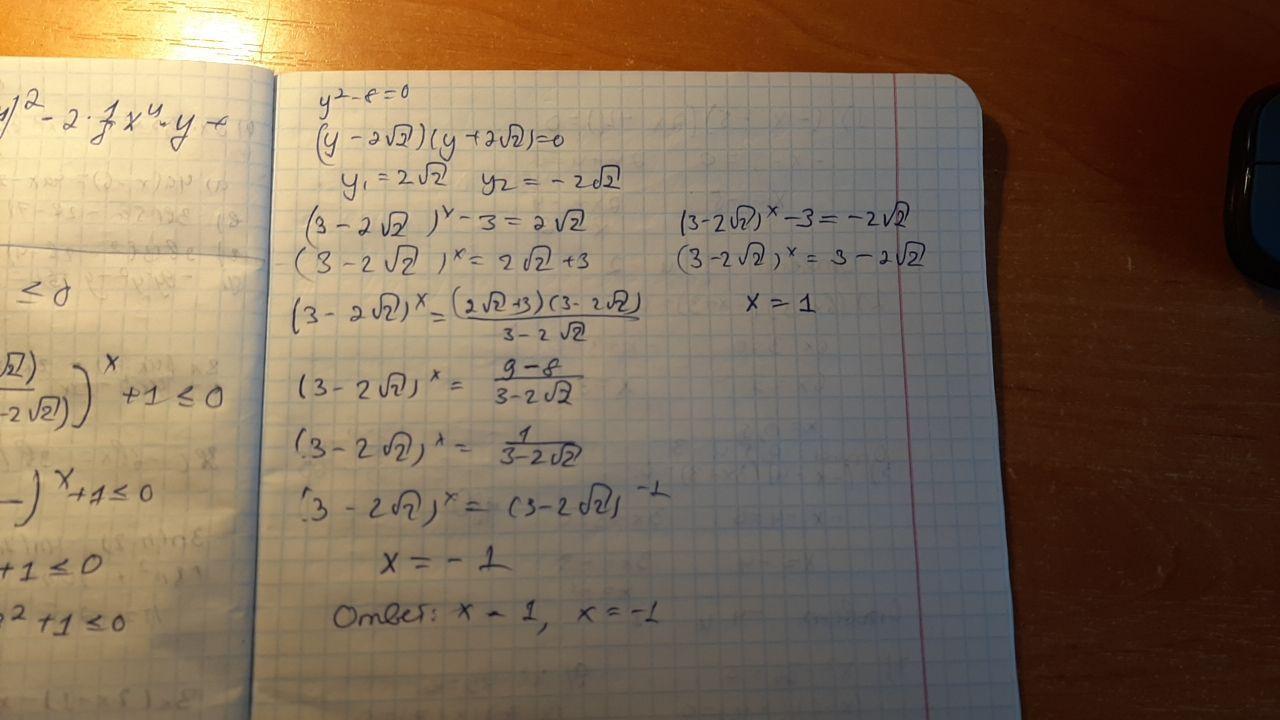 y)² - 2 · 1/2 x⁴ · y +
≤ 8
√2)
-2√2))ˣ + 1 ≤ 0
-)ˣ + 1 ≤ 0
+ 1 ≤ 0
² + 1 ≤ 0
y² - 8 = 0
(y - 2√2)(y + 2√2) = 0
y₁ = 2√2 y₂ = -2√2
(3 - 2√2)ˣ - 3 = 2√2
(3 - 2√2)ˣ = 2√2 + 3
(3 - 2√2)ˣ = (2√2 + 3)(3 - 2√2) / 3 - 2√2
(3 - 2√2)ˣ = 9 - 8 / 3 - 2√2
(3 - 2√2)ˣ = 1 / 3 - 2√2
(3 - 2√2)ˣ = (3 - 2√2)⁻¹
x = - 1
(3 - 2√2)ˣ - 3 = -2√2
(3 - 2√2)ˣ = 3 - 2√2
x = 1
Ответ: x = 1, x = -1